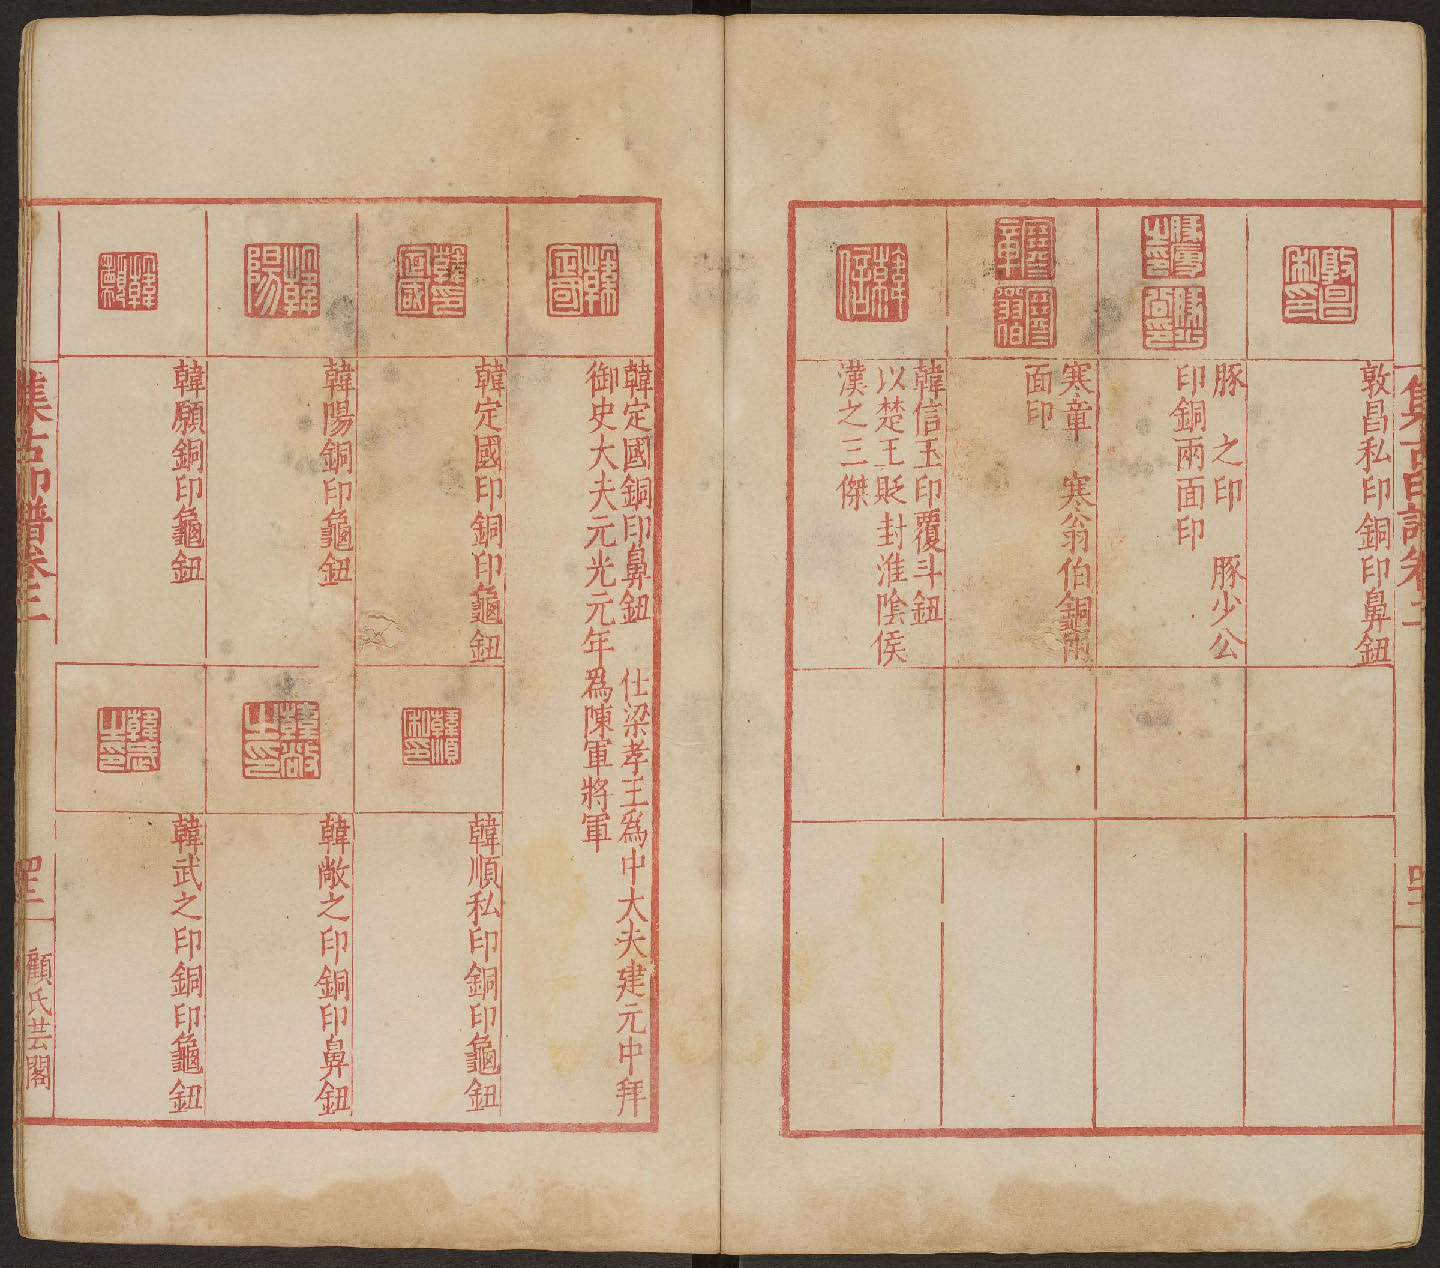 敦昌私印銅印鼻鈕
豚　之印　豚少公
印銅兩面印
寒章　寒翁伯銅兩
面印
韓信玉印覆斗鈕
以楚王貶封淮陰侯
漢之三傑
韓定國銅印鼻鈕　仕梁孝王爲中大夫建元中拜
御史大夫元光元年爲陳軍將軍
韓定國印銅印龜鈕
韓順私印銅印龜鈕
韓陽銅印龜鈕
韓敞之印銅印鼻鈕
韓願銅印龜鈕
韓武之印銅印龜鈕
集古印譜卷三
顧氏芸閣